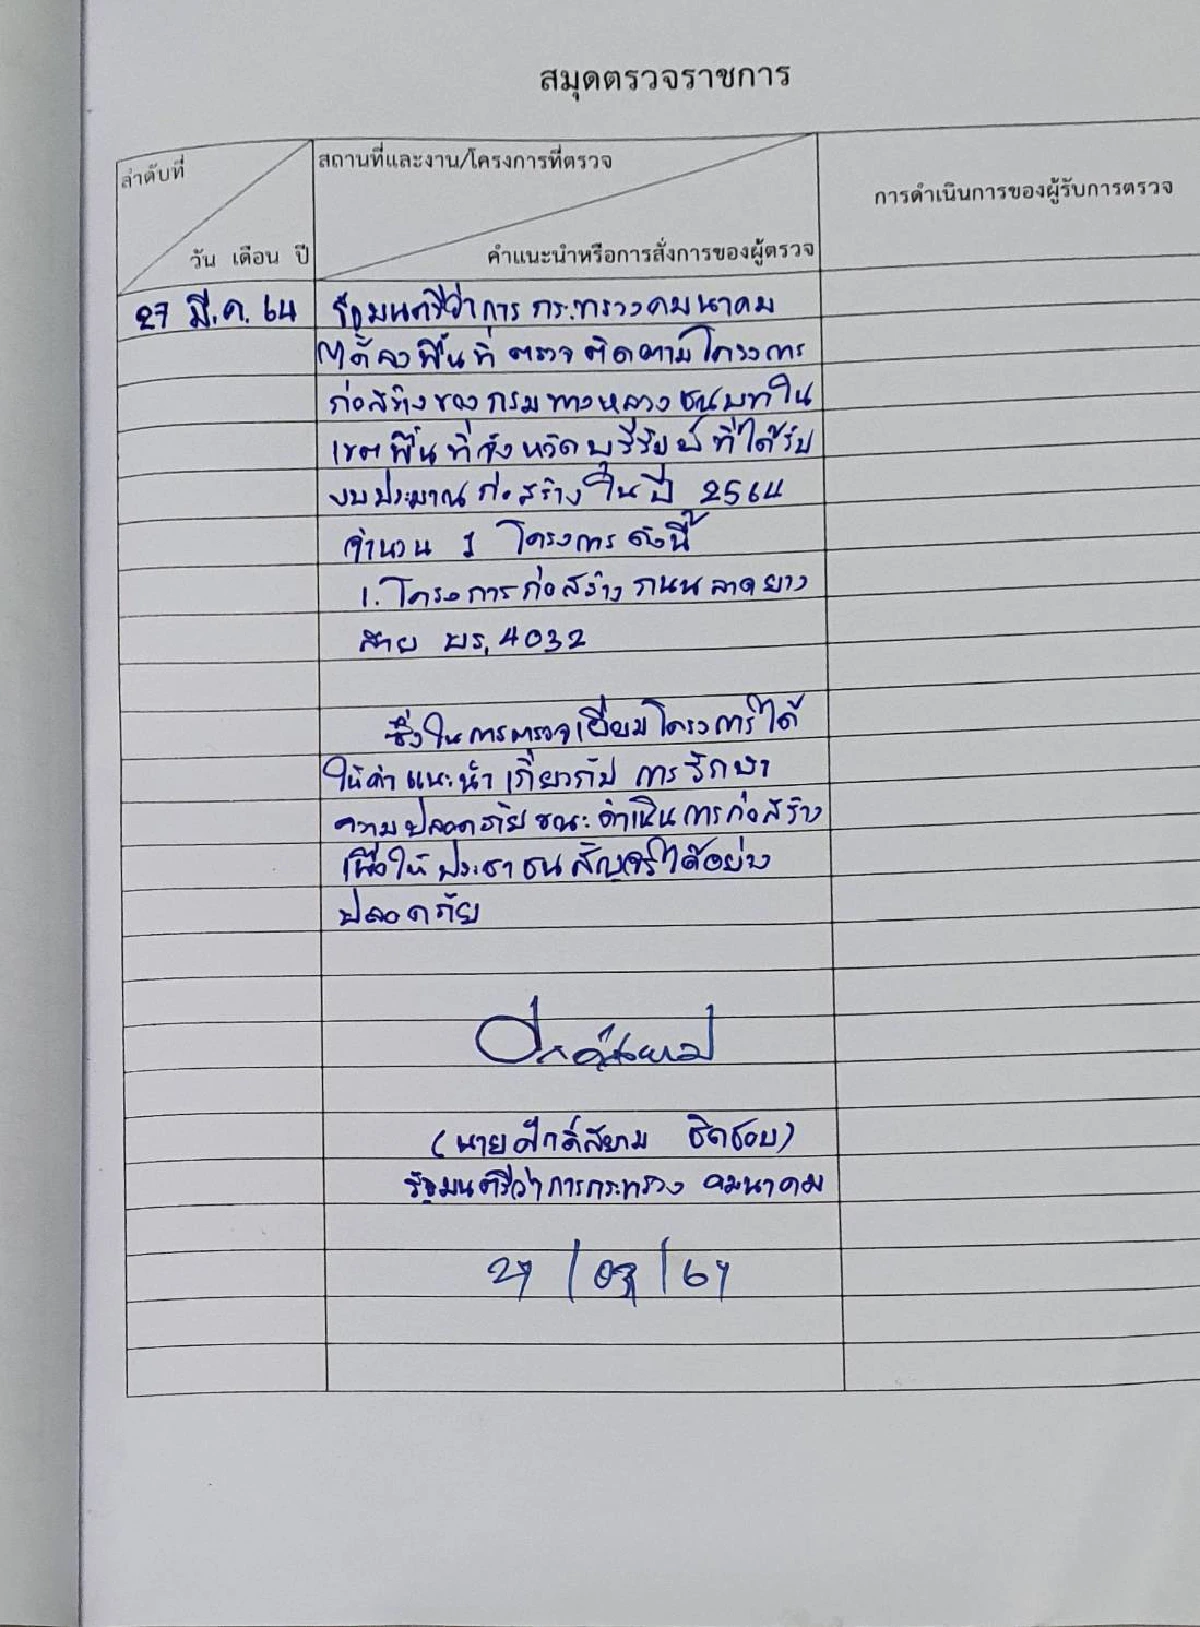 สมุดตรวจราชการ
ลำดับที่
วัน เดือน ปี
สถานที่และงาน/โครงการที่ตรวจ
คำแนะนำหรือการสั่งการของผู้ตรวจ
การดำเนินการของผู้รับการตรวจ
27 มี.ค. 64 รัฐมนตรีว่าการกระทรวงคมนาคม
ได้ลงพื้นที่ตรวจติดตามโครงการ
ก่อสร้างของกรมทางหลวงชนบทใน
เขตพื้นที่จังหวัดบุรีรัมย์ที่ได้รับ
งบประมาณก่อสร้างในปี 2564
จำนวน 1 โครงการดังนี้
1. โครงการก่อสร้างถนนลาดยาง
สาย บร.4032
ซึ่งในการตรวจเยี่ยมโครงการได้
ให้คำแนะนำเกี่ยวกับการรักษา
ความปลอดภัยขณะดำเนินการก่อสร้าง
เพื่อให้ประชาชนสัญจรได้อย่าง
ปลอดภัย
(นายศักดิ์สยาม ชิดชอบ)
รัฐมนตรีว่าการกระทรวงคมนาคม
27 / 03 / 64